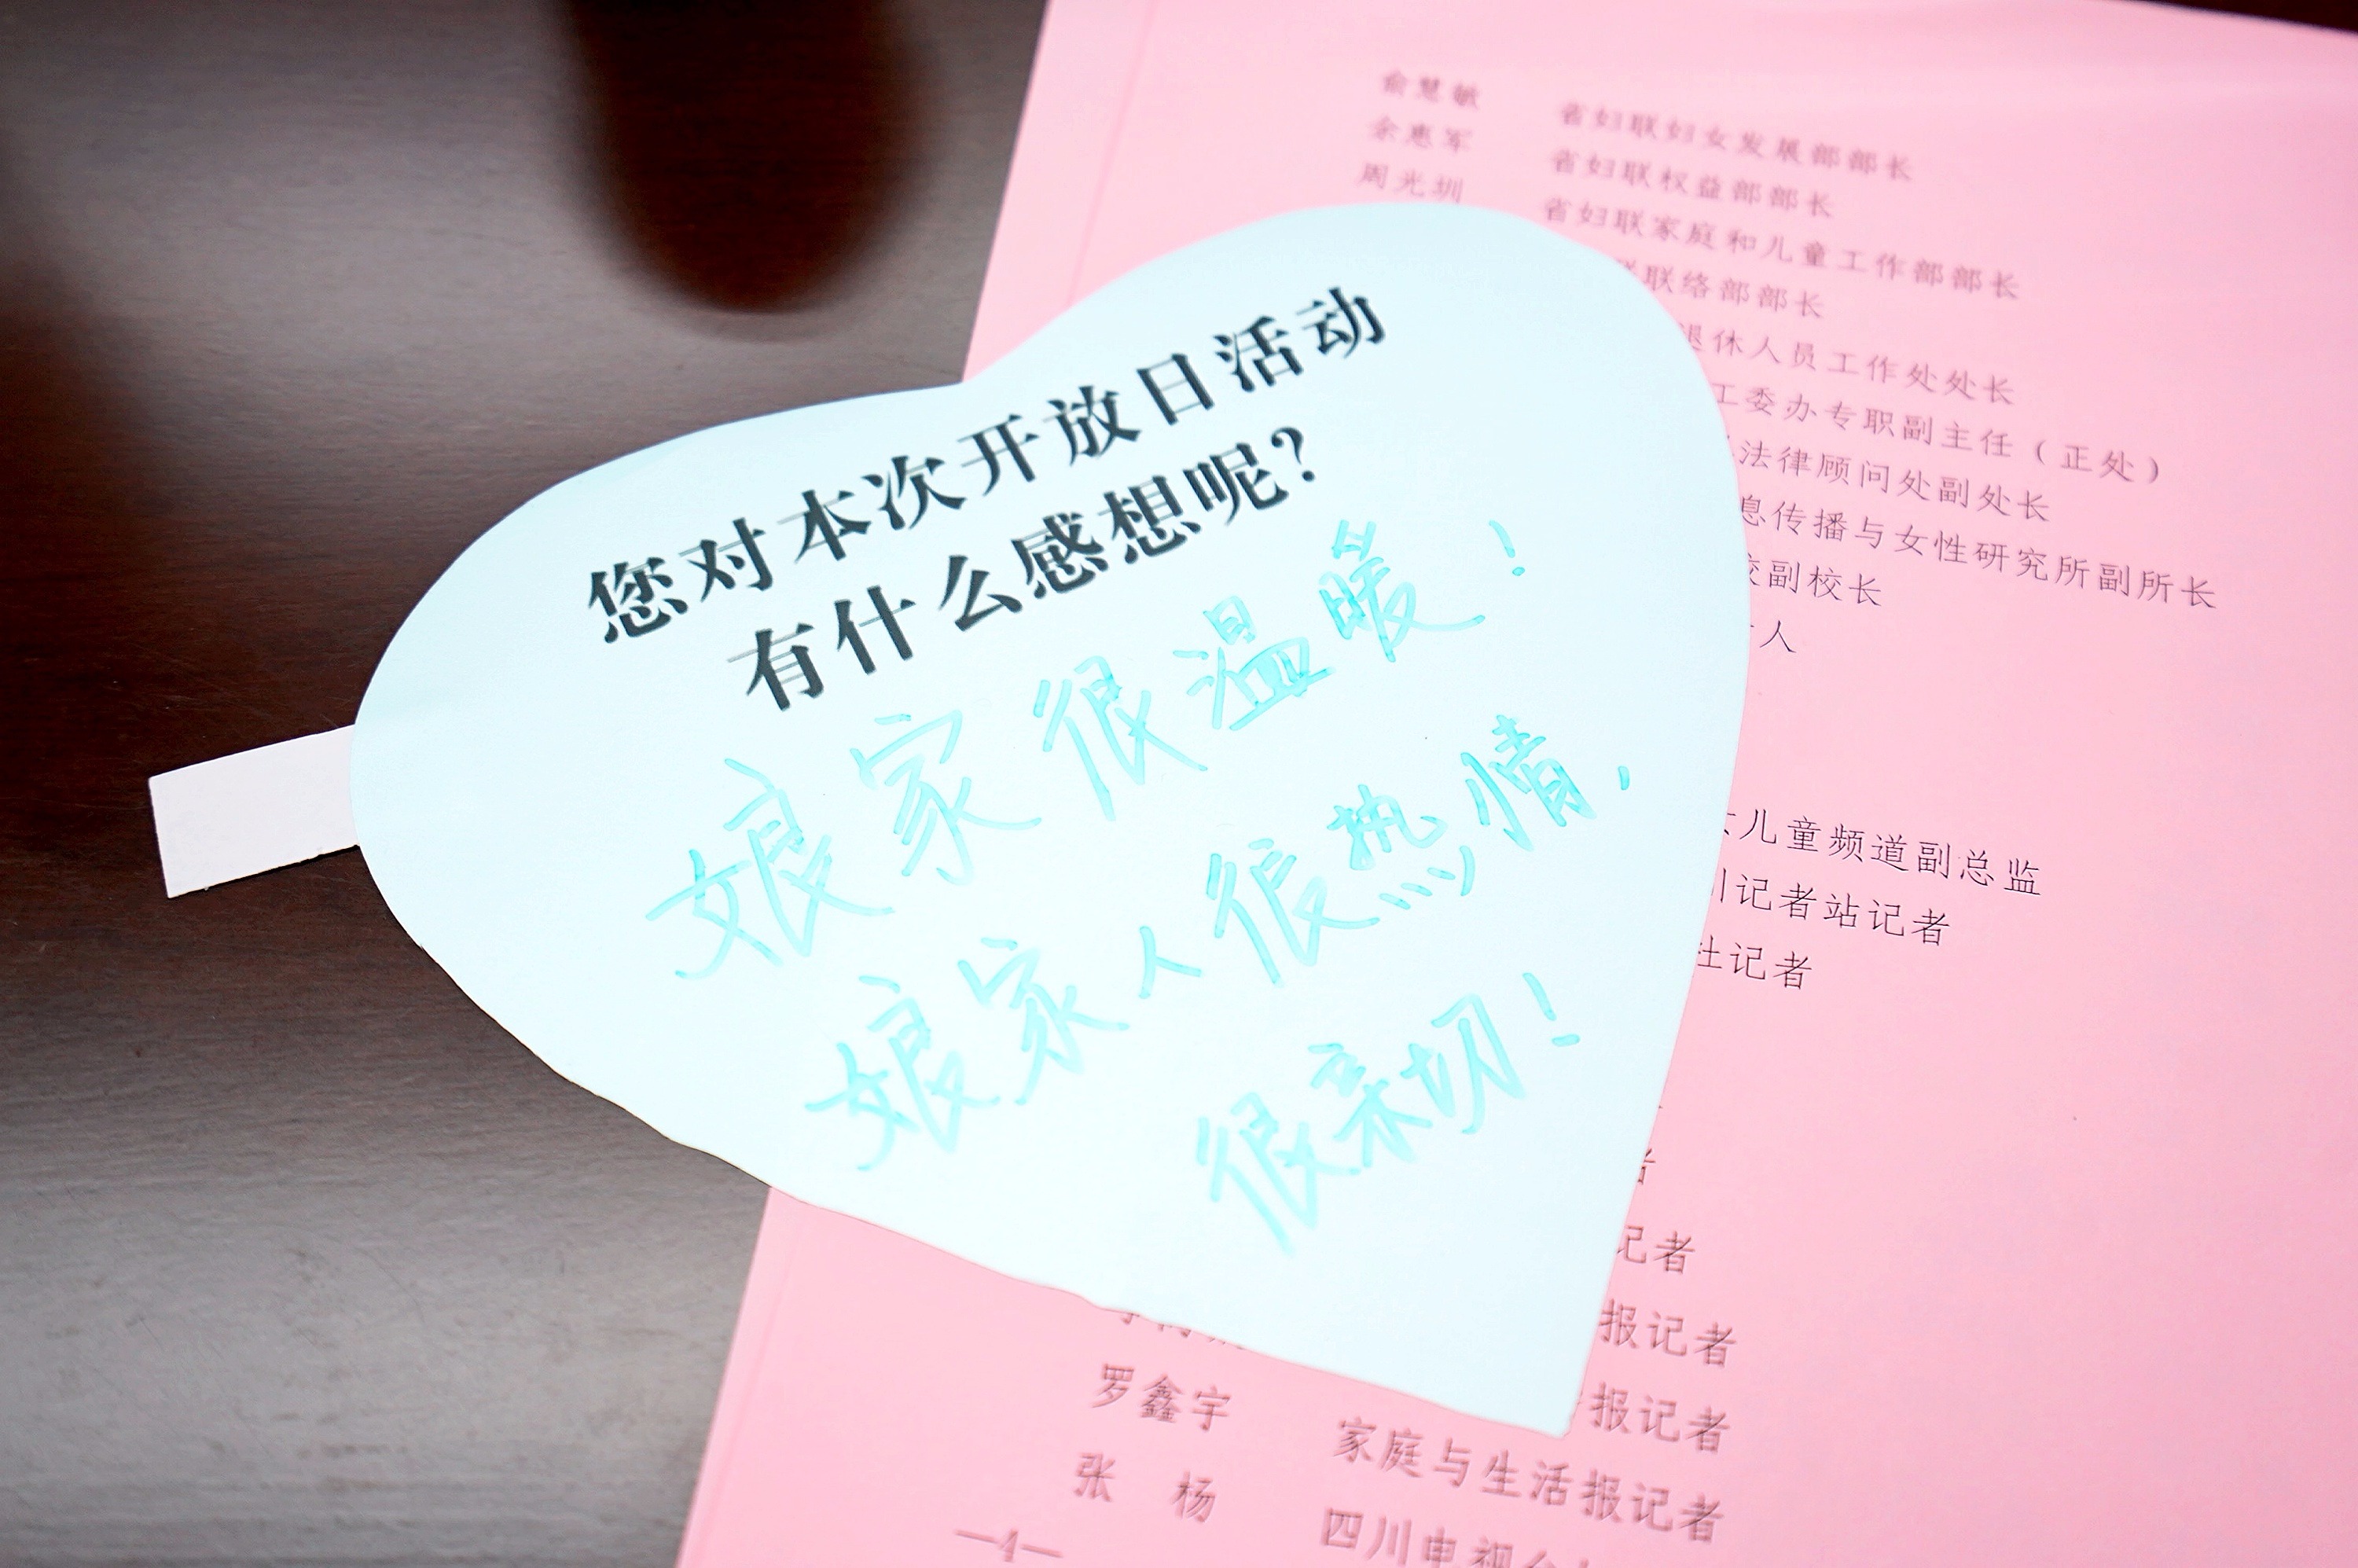 您对本次开放日活动
有什么感想呢？
娘家很温暖！
娘家人很热情，
很亲切！
俞慧敏 省妇联妇女发展部部长
余惠军 省妇联权益部部长
周光圳 省妇联家庭和儿童工作部部长
联络部部长
退休人员工作处处长
工委办专职副主任（正处）
法律顾问处副处长
息传播与女性研究所副所长
校副校长
人
儿童频道副总监
川记者站记者
社记者
者
记者
报记者
报记者
罗鑫宇 家庭与生活报记者
张 杨 四川电视台
—4—